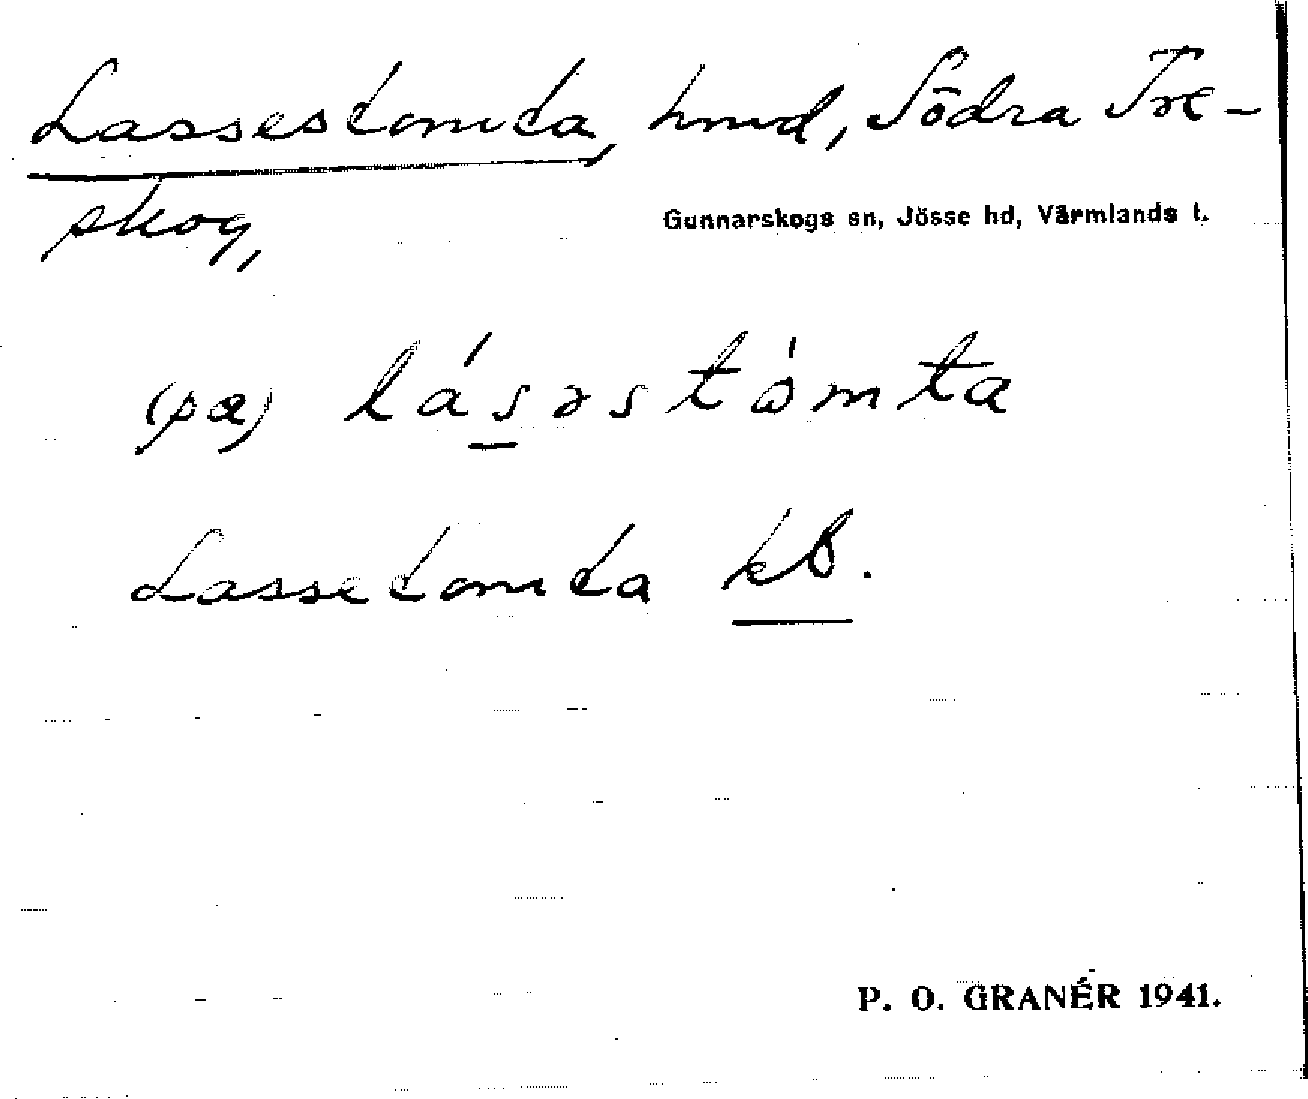 Lassestomta, hmd, Södra Tre-
skog,
Gunnarskogs sn, Jösse hd, Värmlands l.
(pa) lásəstòmta
Lassetomta kb.
P. O. GRANÉR 1941.